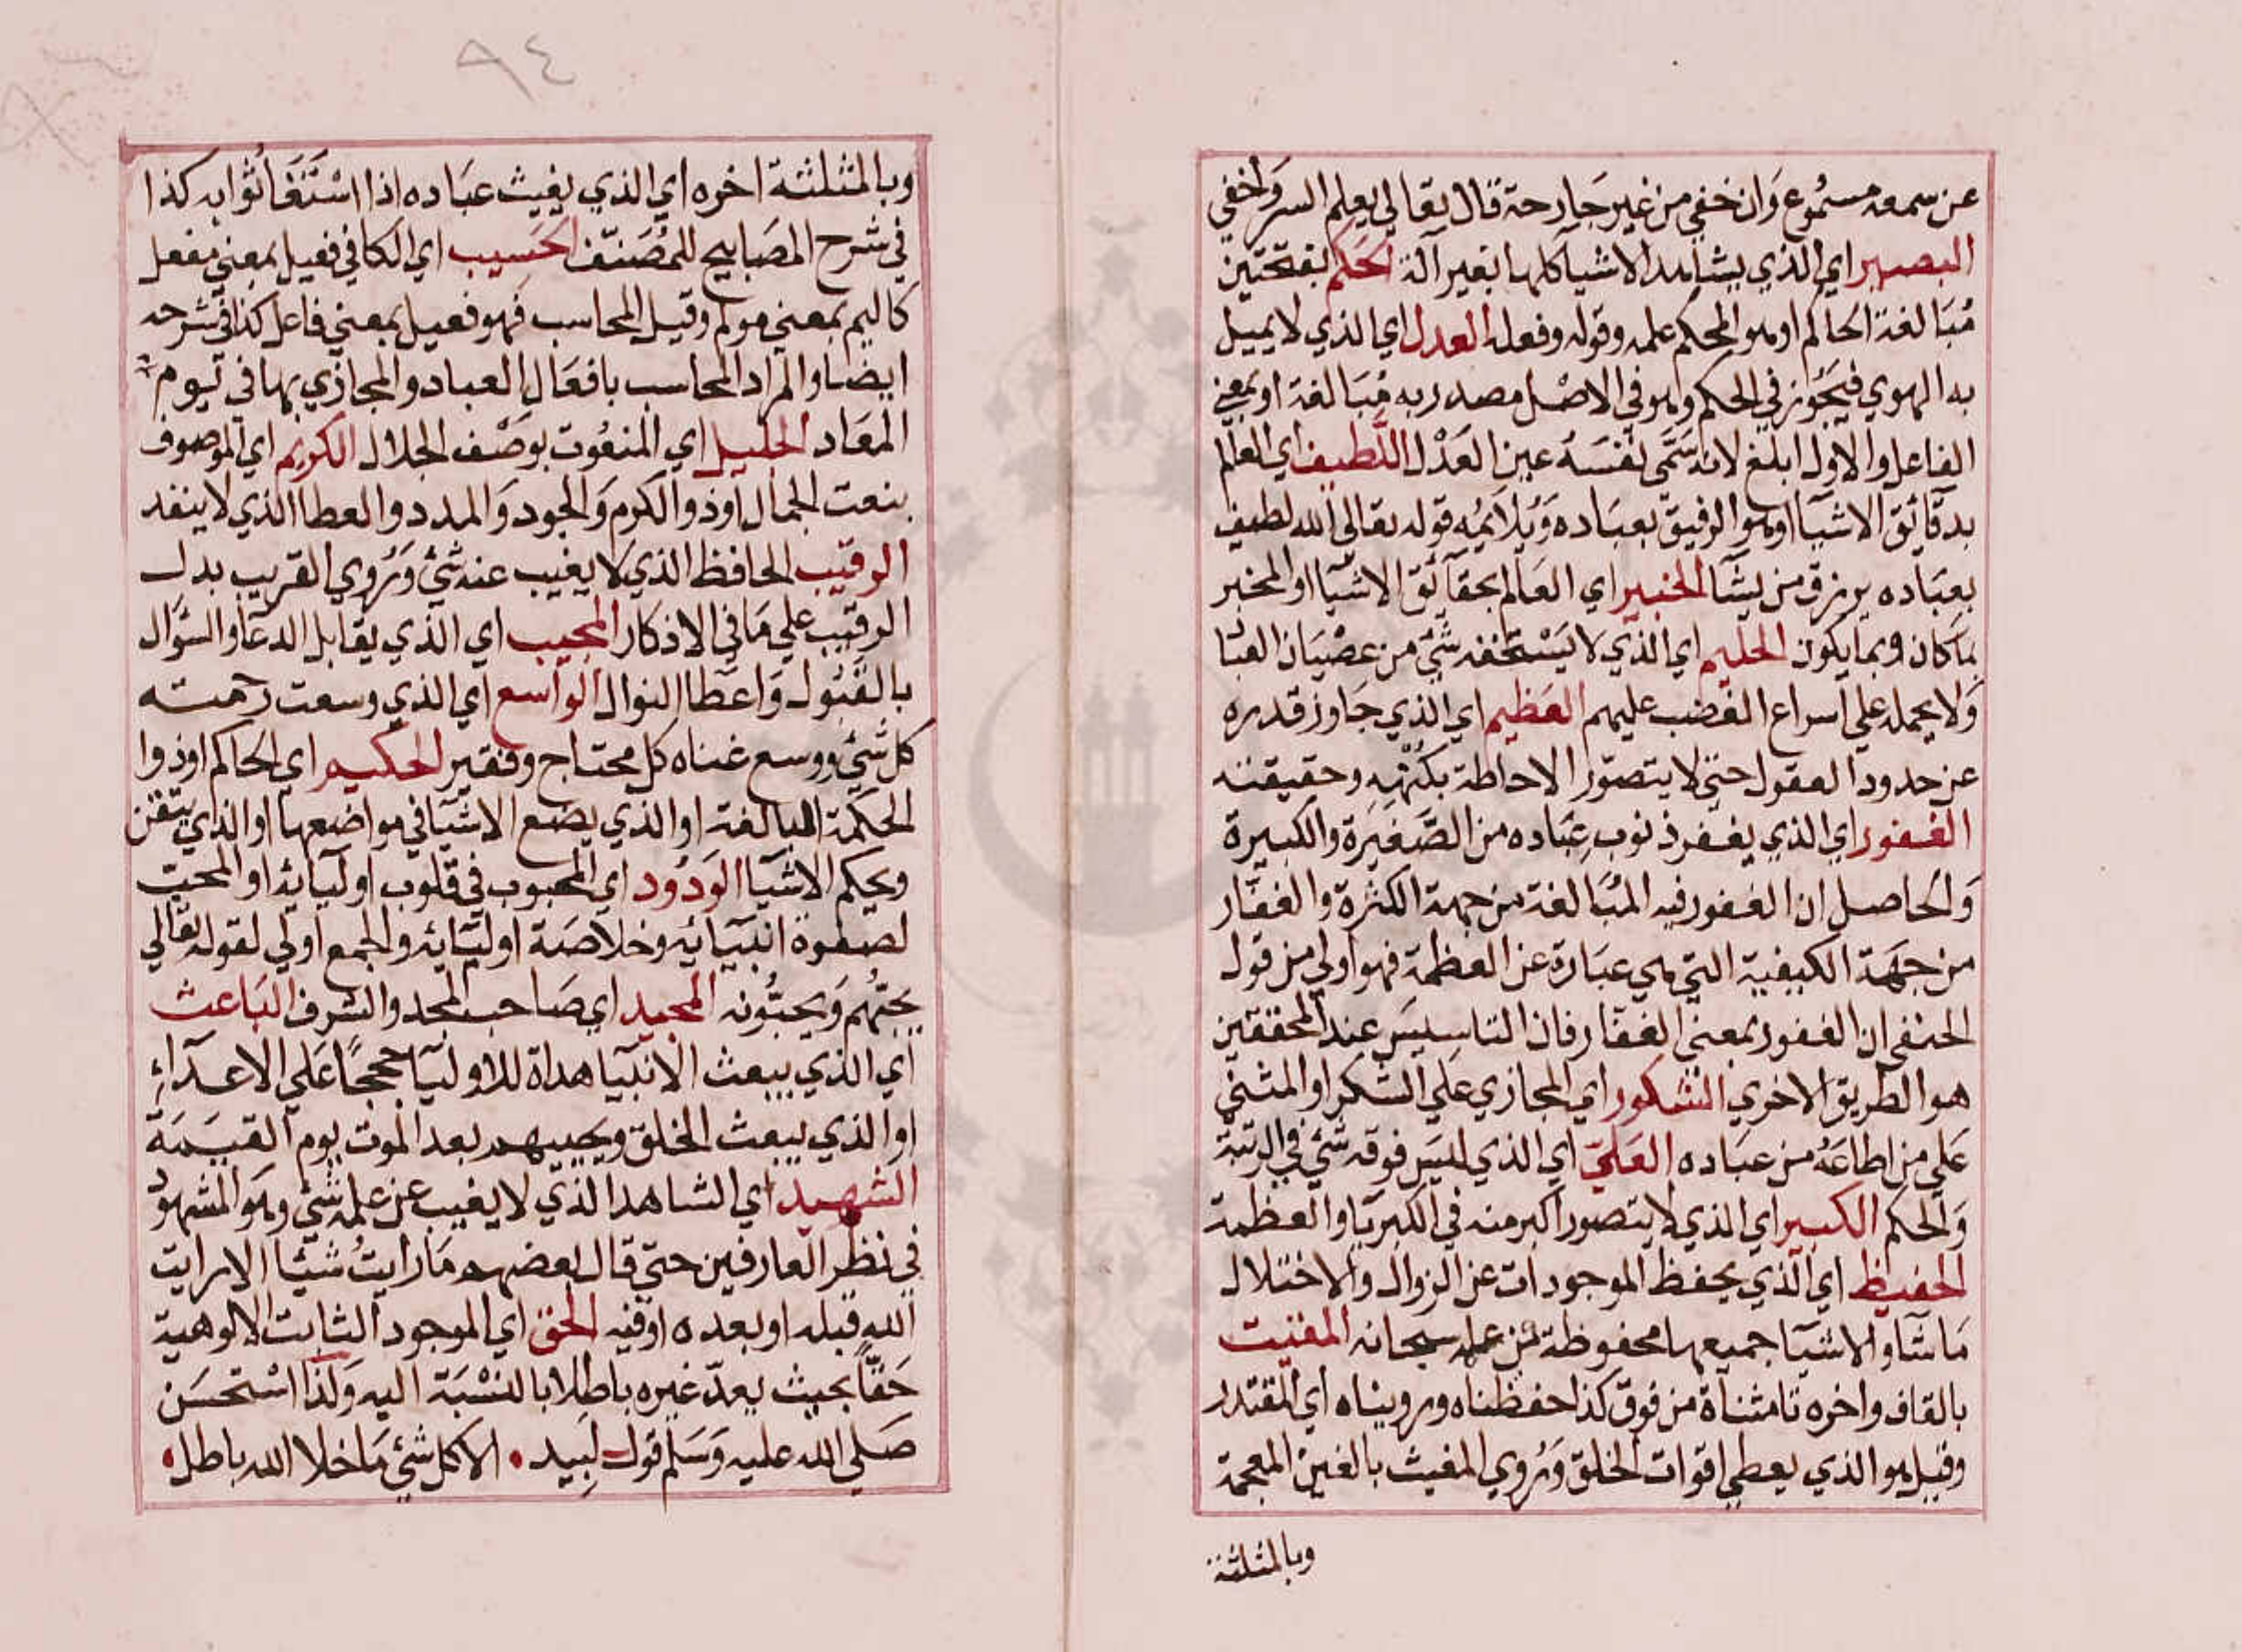 عن سمعه مسموع وان خفي من غير جارحة قال تعالي يعلم السر واخفي
البصير اي الذي يشاهد الاشيا كلها بغير آلة الحكم بفتحتين
مبالغة الحاكم او هو المحكم علمه وقوله وفعله العدل اي الذي لا يميل
به الهوي فيجوز في الحكم وهو في الاصل مصدر به مبالغة او بمعني
الفاعل والاول ابلغ لانه سمي نفسه عين العدل اللطيف اي العالم
بدقائق الاشيا او هو الرفيق بعباده ويلايمه قوله تعالي الله لطيف
بعباده يرزق من يشا الخبير اي العالم بحقائق الاشيا او المخبر
بما كان وبما يكون الحليم اي الذي لا يستخفه شئ من عصيان العبا
ولا يحمله علي اسراع الغضب عليهم العظيم اي الذي جاوز قدره
عن حدود العقول حتي لا يتصور الاحاطة بكنهه وحقيقته
الغفور اي الذي يغفر ذنوب عباده من الصغيرة والكبيرة
والحاصل ان الغفور فيه المبالغة من جهة الكثرة والغفار
من جهة الكيفية التي هي عبارة عن العظمة فهو اولي من قول
الحنفي ان الغفور بمعني الغفار فان التاسيس عند المحققين
هو الطريق الاخري الشكور اي المجازي علي الشكر او المثني
علي من اطاعه من عباده العلي اي الذي ليس فوقه شئ في الرتبة
والحكم الكبير اي الذي لا يتصور اكبر منه في الكبريا والعظمة
الحفيظ اي الذي يحفظ الموجودات عن الزوال والاختلال
ما شا والاشيا جميعها محفوظة عن علمه سبحانه المقيت
بالقاف واخره تا مثناة من فوق كذا حفظناه ورويناه اي المقتدر
وقيل هو الذي يعطي اقوات الخلق وروي المغيث بالغين المعجمة
وبالمثلثة
٩٤
وبالمثلثة اخره اي الذي يغيث عباده اذا استغاثوا به كذا
في شرح المصابيح للمصنف الحسيب اي الكافي فعيل بمعني مفعل
كاليم بمعني مولم وقيل المحاسب فهو فعيل بمعني فاعل كذا في شرحه
ايضا والمراد المحاسب بافعال العباد والمجازي بها في يوم
المعاد الجليل اي المنعوت بوصف الجلال الكريم اي الموصوف
بنعت الجمال او ذو الكرم والجود والمدد والعطا الذي لا ينفد
الرقيب الحافظ الذي لا يغيب عنه شئ وروي القريب بدل
الرقيب علي ما في الاذكار المجيب اي الذي يقابل الدعا والسؤال
بالقبول واعطا النوال الواسع اي الذي وسعت رحمته
كل شئ ووسع غناه كل محتاج وفقير الحكيم اي الحاكم او ذوا
الحكمة البالغة او الذي يضع الاشيا في مواضعها او الذي يتقن
ويحكم الاشيا الودود اي المحبوب في قلوب اوليائه او المحب
لصفوة انبيائه وخلاصة اوليائه والجمع اولي لقوله تعالي
يحبهم ويحبونه المجيد اي صاحب المجد والشرف الباعث
اي الذي يبعث الانبيا هداة للاوليا حججا علي الاعداء
او الذي يبعث الخلق ويحييهم بعد الموت يوم القيمة
الشهيد اي الشاهد الذي لا يغيب عن علمه شئ وهو المشهود
في نظر العارفين حتي قال بعضهم ما رايت شيئا الا رايت
الله قبله او بعده او فيه الحق اي الموجود الثابت الالوهية
حقا بحيث يعد غيره باطلا بالنسبة اليه ولذا استحسن
صلي الله عليه وسلم قول لبيد • الا كل شئ ما خلا الله باطل •